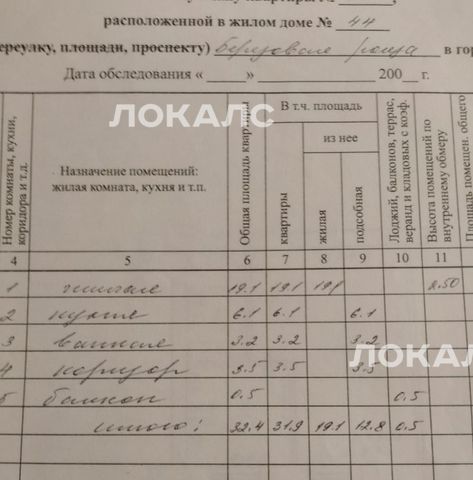 квартиры №
расположенной в жилом доме № 44
переулку, площади, проспекту) Березовая роща в гор
Дата обследования « » 200 г.
ЛОКАЛС
Номер комнаты, кухни, коридора и т.д.
Назначение помещений: жилая комната, кухня и т.п.
Общая площадь квартиры
В т.ч. площадь
квартиры
из нее
жилая
подсобная
Лоджий, балконов, террас, веранд и кладовых с коэф.
Высота помещений по внутреннему обмеру
Площадь помещен. общего
4 5 6 7 8 9 10 11
1 жилая 19.1 19.1 19.1 2.50
2 кухня 6.1 6.1 6.1
3 ванная 3.2 3.2 3.2
ЛОКАЛС
4 коридор 3.5 3.5 3.5
5 балкон 0.5 0.5
итого: 32.4 31.9 19.1 12.8 0.5